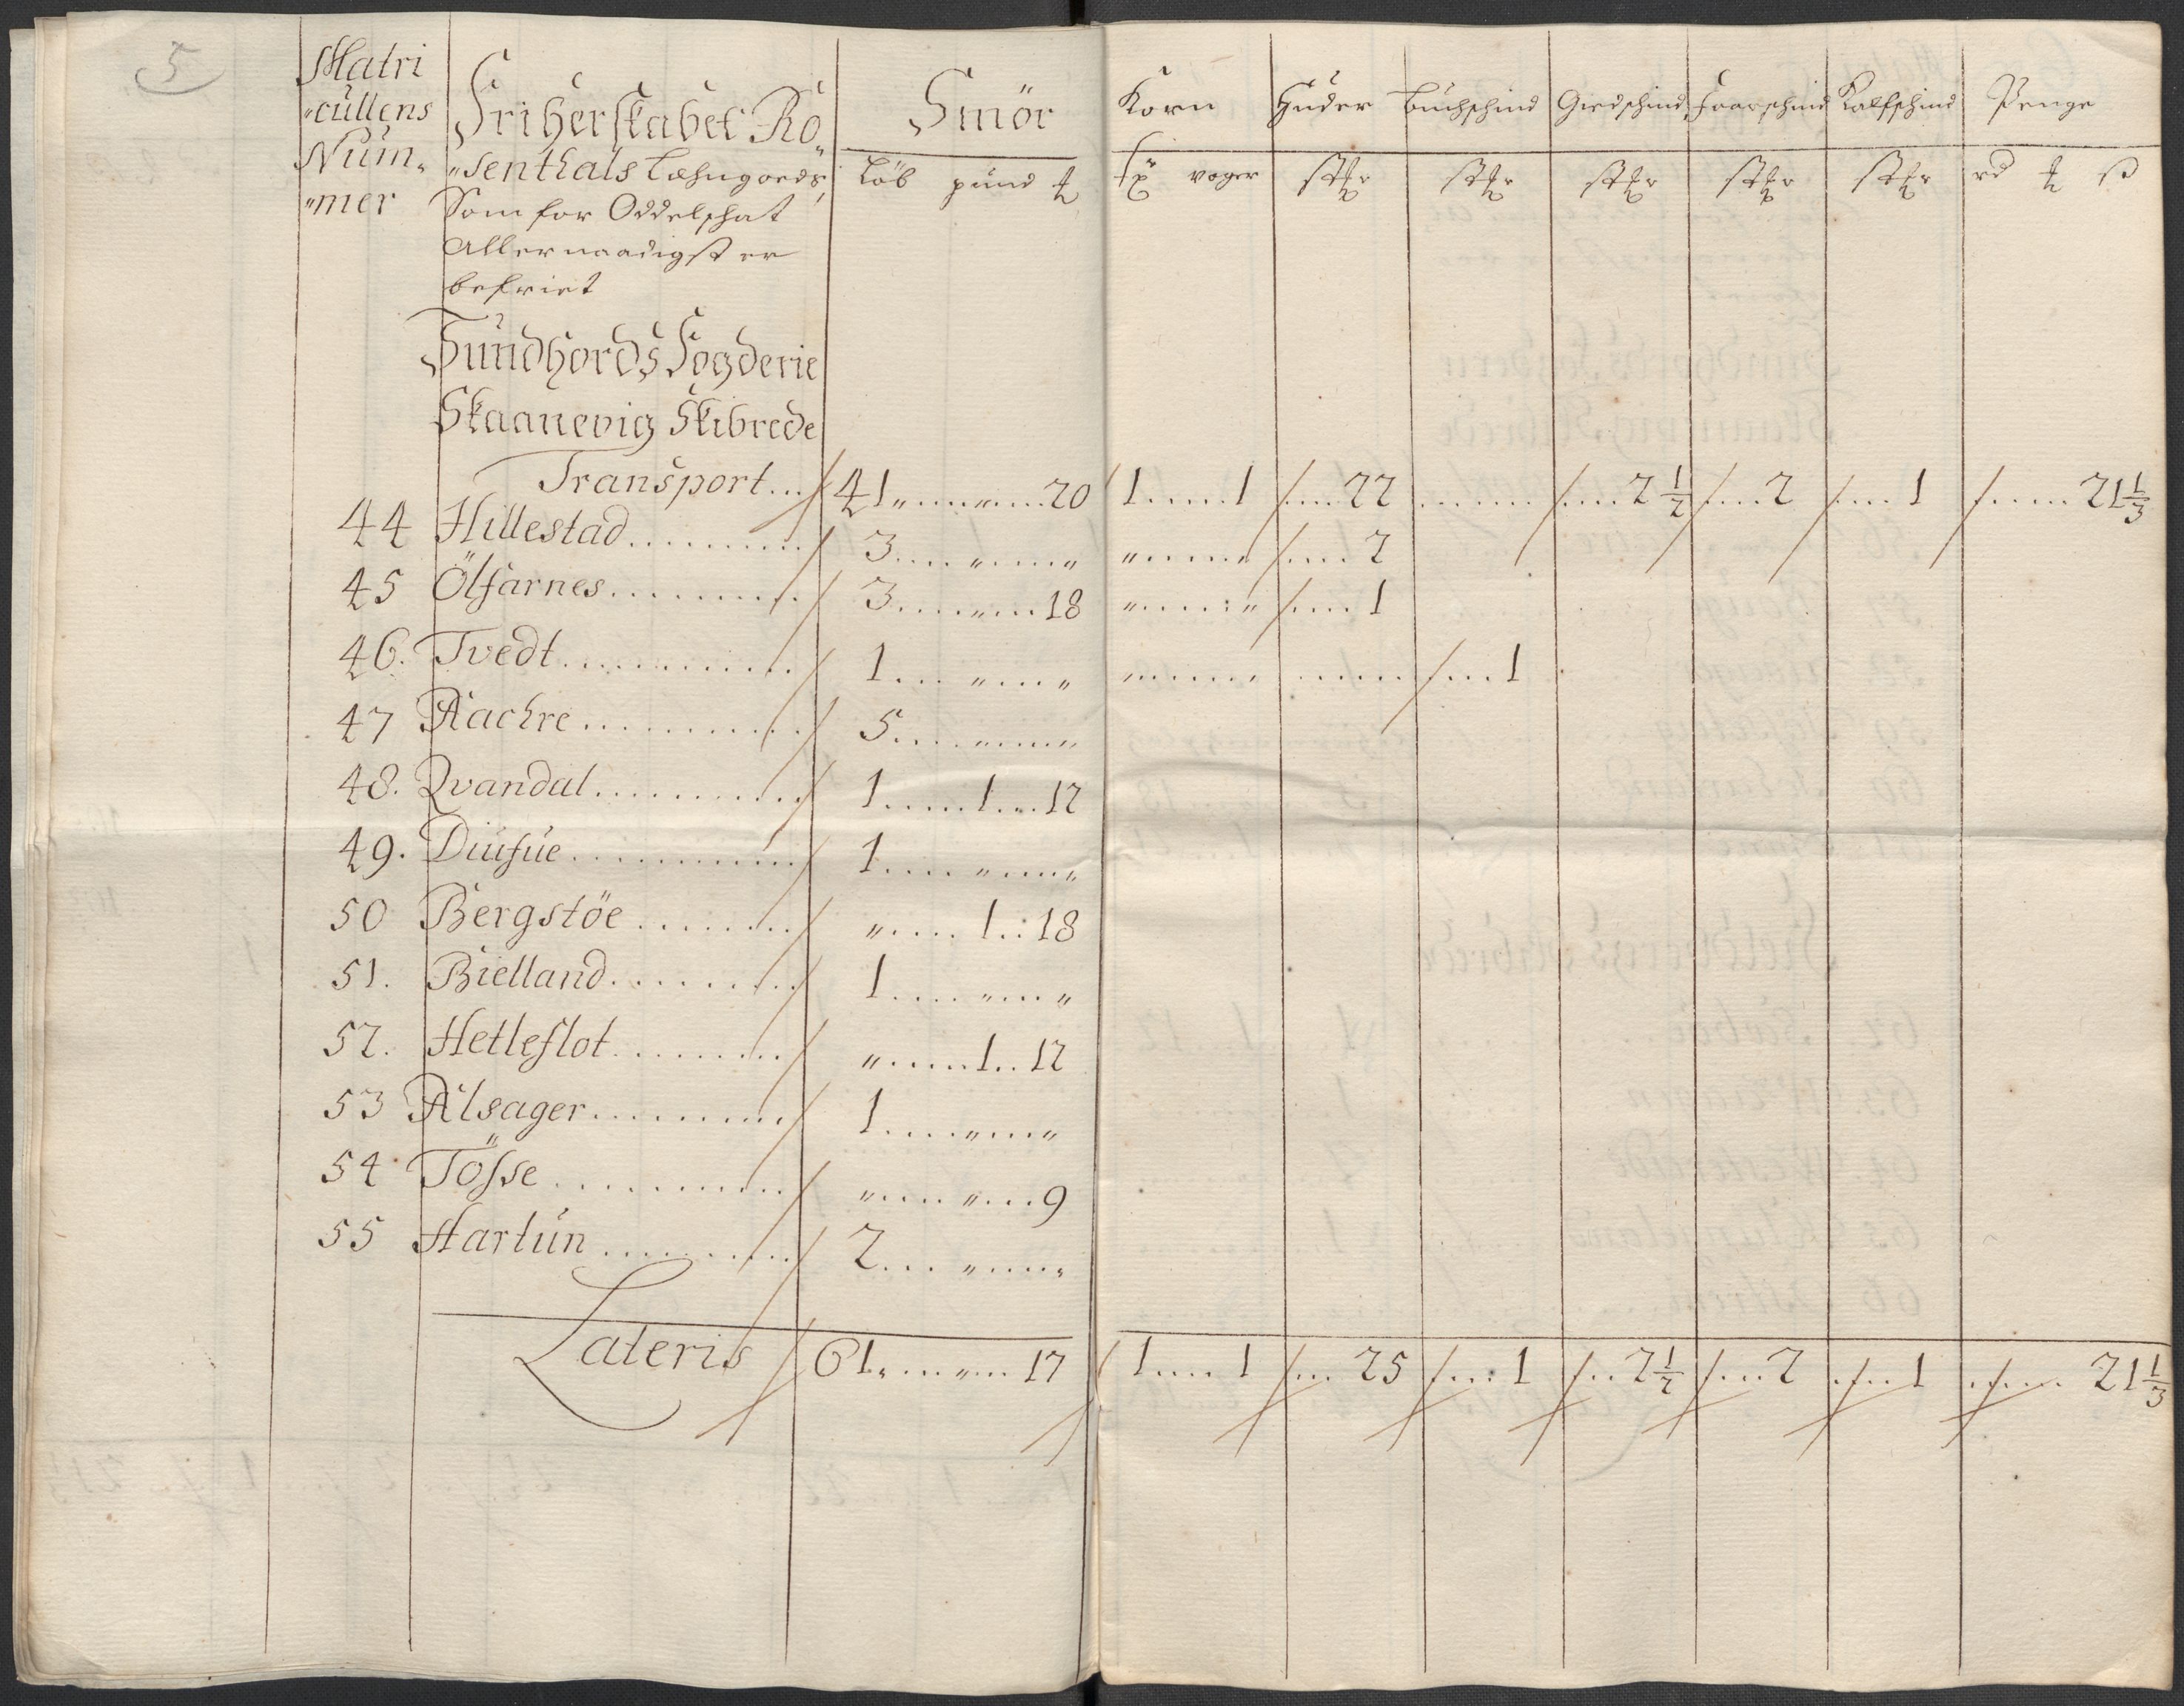 5
Matri
"cullens
Num"
"mer
Friherskabet Ro"
"senthals Læhngoeds,
Som for Oddelschat
Allernaadigst er
befriet
Smör
Löb pund ℔
Korn Huder Buchschind Giedschind Faarschind Kalfschind Penge
voger rd ß
Sundhords Fogderie
Skaanevig Skibrede
Transport... 41 " 20 1....1 22 2½ 2 1 21⅓
44 Hillestad.......... 3.... " .... " " .... " 2
45 Ölfarnes.......... 3.... " ...18 " .... " 1
46. Tvedt............ 1... " ... " 1
47 Aachre........... 5.... " .... "
48. Qvandal.......... 1.....1...12
49. Diufue........... 1.... " .... "
50 Bergstöe......... " .... 1..18
51. Bielland......... 1.... " ... "
52. Hetleflot......... " ....1..12
53 Alsager.......... 1.... " ... "
54 Tösse........... " .... " ...9
55 Hartun.......... 2... " .... "
Lateris 61 " ... " ... 17 1.... 1 25 1 2½ 2 1 21⅓